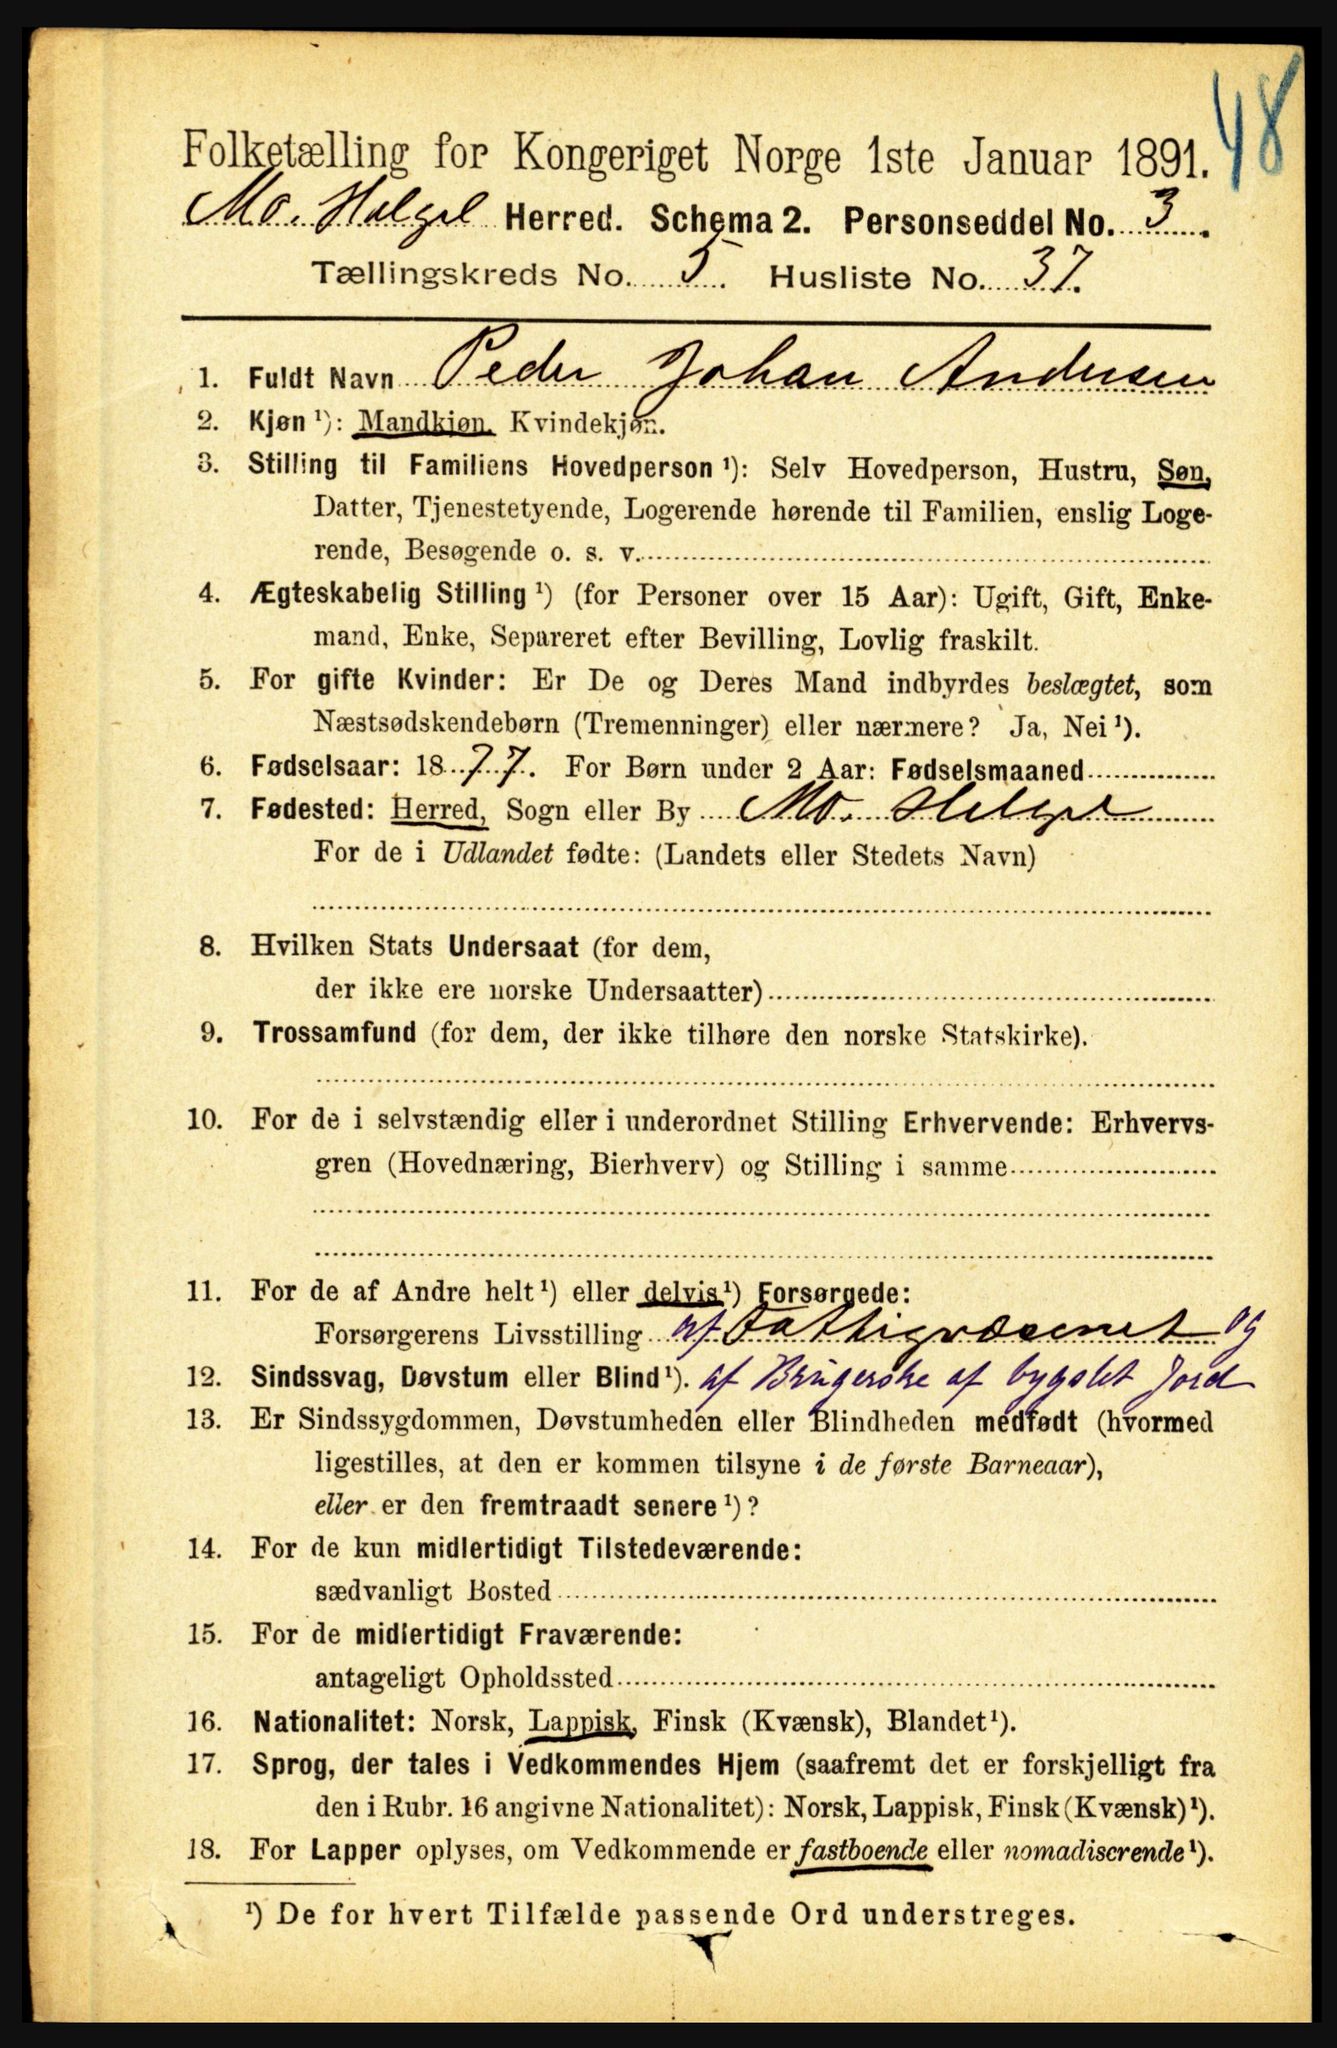 48
Folketælling for Kongeriget Norge 1ste Januar 1891.
Mo. Helgel Herred. Schema 2. Personseddel No. 3.
Tællingskreds No. 5. Husliste No. 37.
1. Fuldt Navn Peder Johan Andersen
2. Kjøn ¹): Mandkjøn. Kvindekjøn.
3. Stilling til Familiens Hovedperson ¹): Selv Hovedperson, Hustru, Søn,
Datter, Tjenestetyende, Logerende hørende til Familien, enslig Loge-
rende, Besøgende o. s. v.
4. Ægteskabelig Stilling ¹) (for Personer over 15 Aar): Ugift, Gift, Enke-
mand, Enke, Separeret efter Bevilling, Lovlig fraskilt.
5. For gifte Kvinder: Er De og Deres Mand indbyrdes beslægtet, som
Næstsødskendebørn (Tremenninger) eller nærmere? Ja, Nei ¹).
6. Fødselsaar: 1877. For Børn under 2 Aar: Fødselsmaaned
7. Fødested: Herred, Sogn eller By Mo. Helgel
For de i Udlandet fødte: (Landets eller Stedets Navn)
8. Hvilken Stats Undersaat (for dem,
der ikke ere norske Undersaatter)
9. Trossamfund (for dem, der ikke tilhøre den norske Statskirke).
10. For de i selvstændig eller i underordnet Stilling Erhvervende: Erhvervs-
gren (Hovednæring, Bierhverv) og Stilling i samme
11. For de af Andre helt ¹) eller delvis ¹) Forsørgede:
Forsørgerens Livsstilling af Fattigvæsenet og
12. Sindssvag, Døvstum eller Blind ¹). af Brugerske af bygslet Jord
13. Er Sindssygdommen, Døvstumheden eller Blindheden medfødt (hvormed
ligestilles, at den er kommen tilsyne i de første Barneaar),
eller er den fremtraadt senere ¹)?
14. For de kun midlertidigt Tilstedeværende:
sædvanligt Bosted
15. For de midlertidigt Fraværende:
antageligt Opholdssted
16. Nationalitet: Norsk, Lappisk, Finsk (Kvænsk), Blandet ¹).
17. Sprog, der tales i Vedkommendes Hjem (saafremt det er forskjelligt fra
den i Rubr. 16 angivne Nationalitet): Norsk, Lappisk, Finsk (Kvænsk) ¹).
18. For Lapper oplyses, om Vedkommende er fastboende eller nomadiserende ¹).
¹) De for hvert Tilfælde passende Ord understreges.